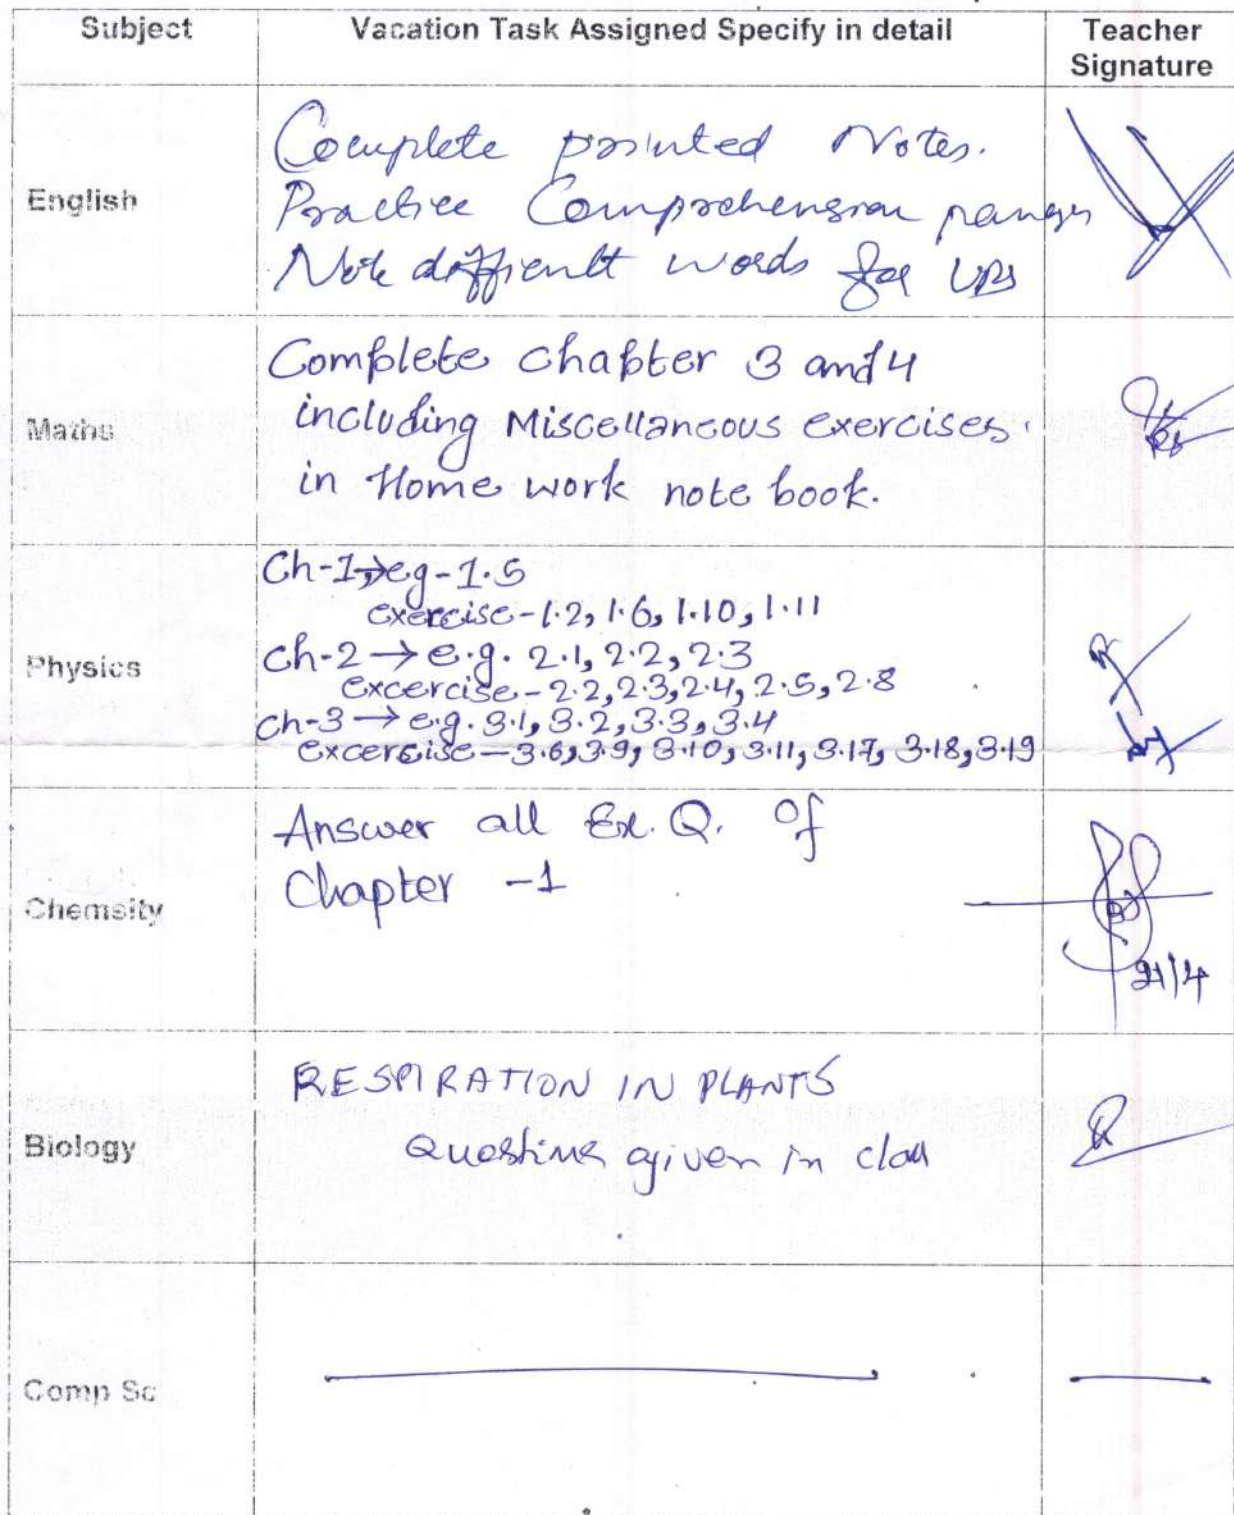 Subject Vacation Task Assigned Specify in detail Teacher
Signature
English
Complete printed Notes.
Practice Comprehension
Note difficult words for
Maths
Complete chapter 3 and 4
including Miscellaneous exercises.
in Home work note book.
Physics
Ch-1→eg-1.5
exercise-1.2, 1.6, 1.10, 1.11
Ch-2→e.g. 2.1, 2.2, 2.3
excercise-2.2, 2.3, 2.4, 2.5, 2.8
Ch-3→e.g. 3.1, 3.2, 3.3, 3.4
excercise-3.6, 3.9, 3.10, 3.11, 3.17, 3.18, 3.19
Chemsity
Answer all Ex. Q. Of
Chapter -1
21/4
Biology
RESPIRATION IN PLANTS
Questions given in class
Comp Sc